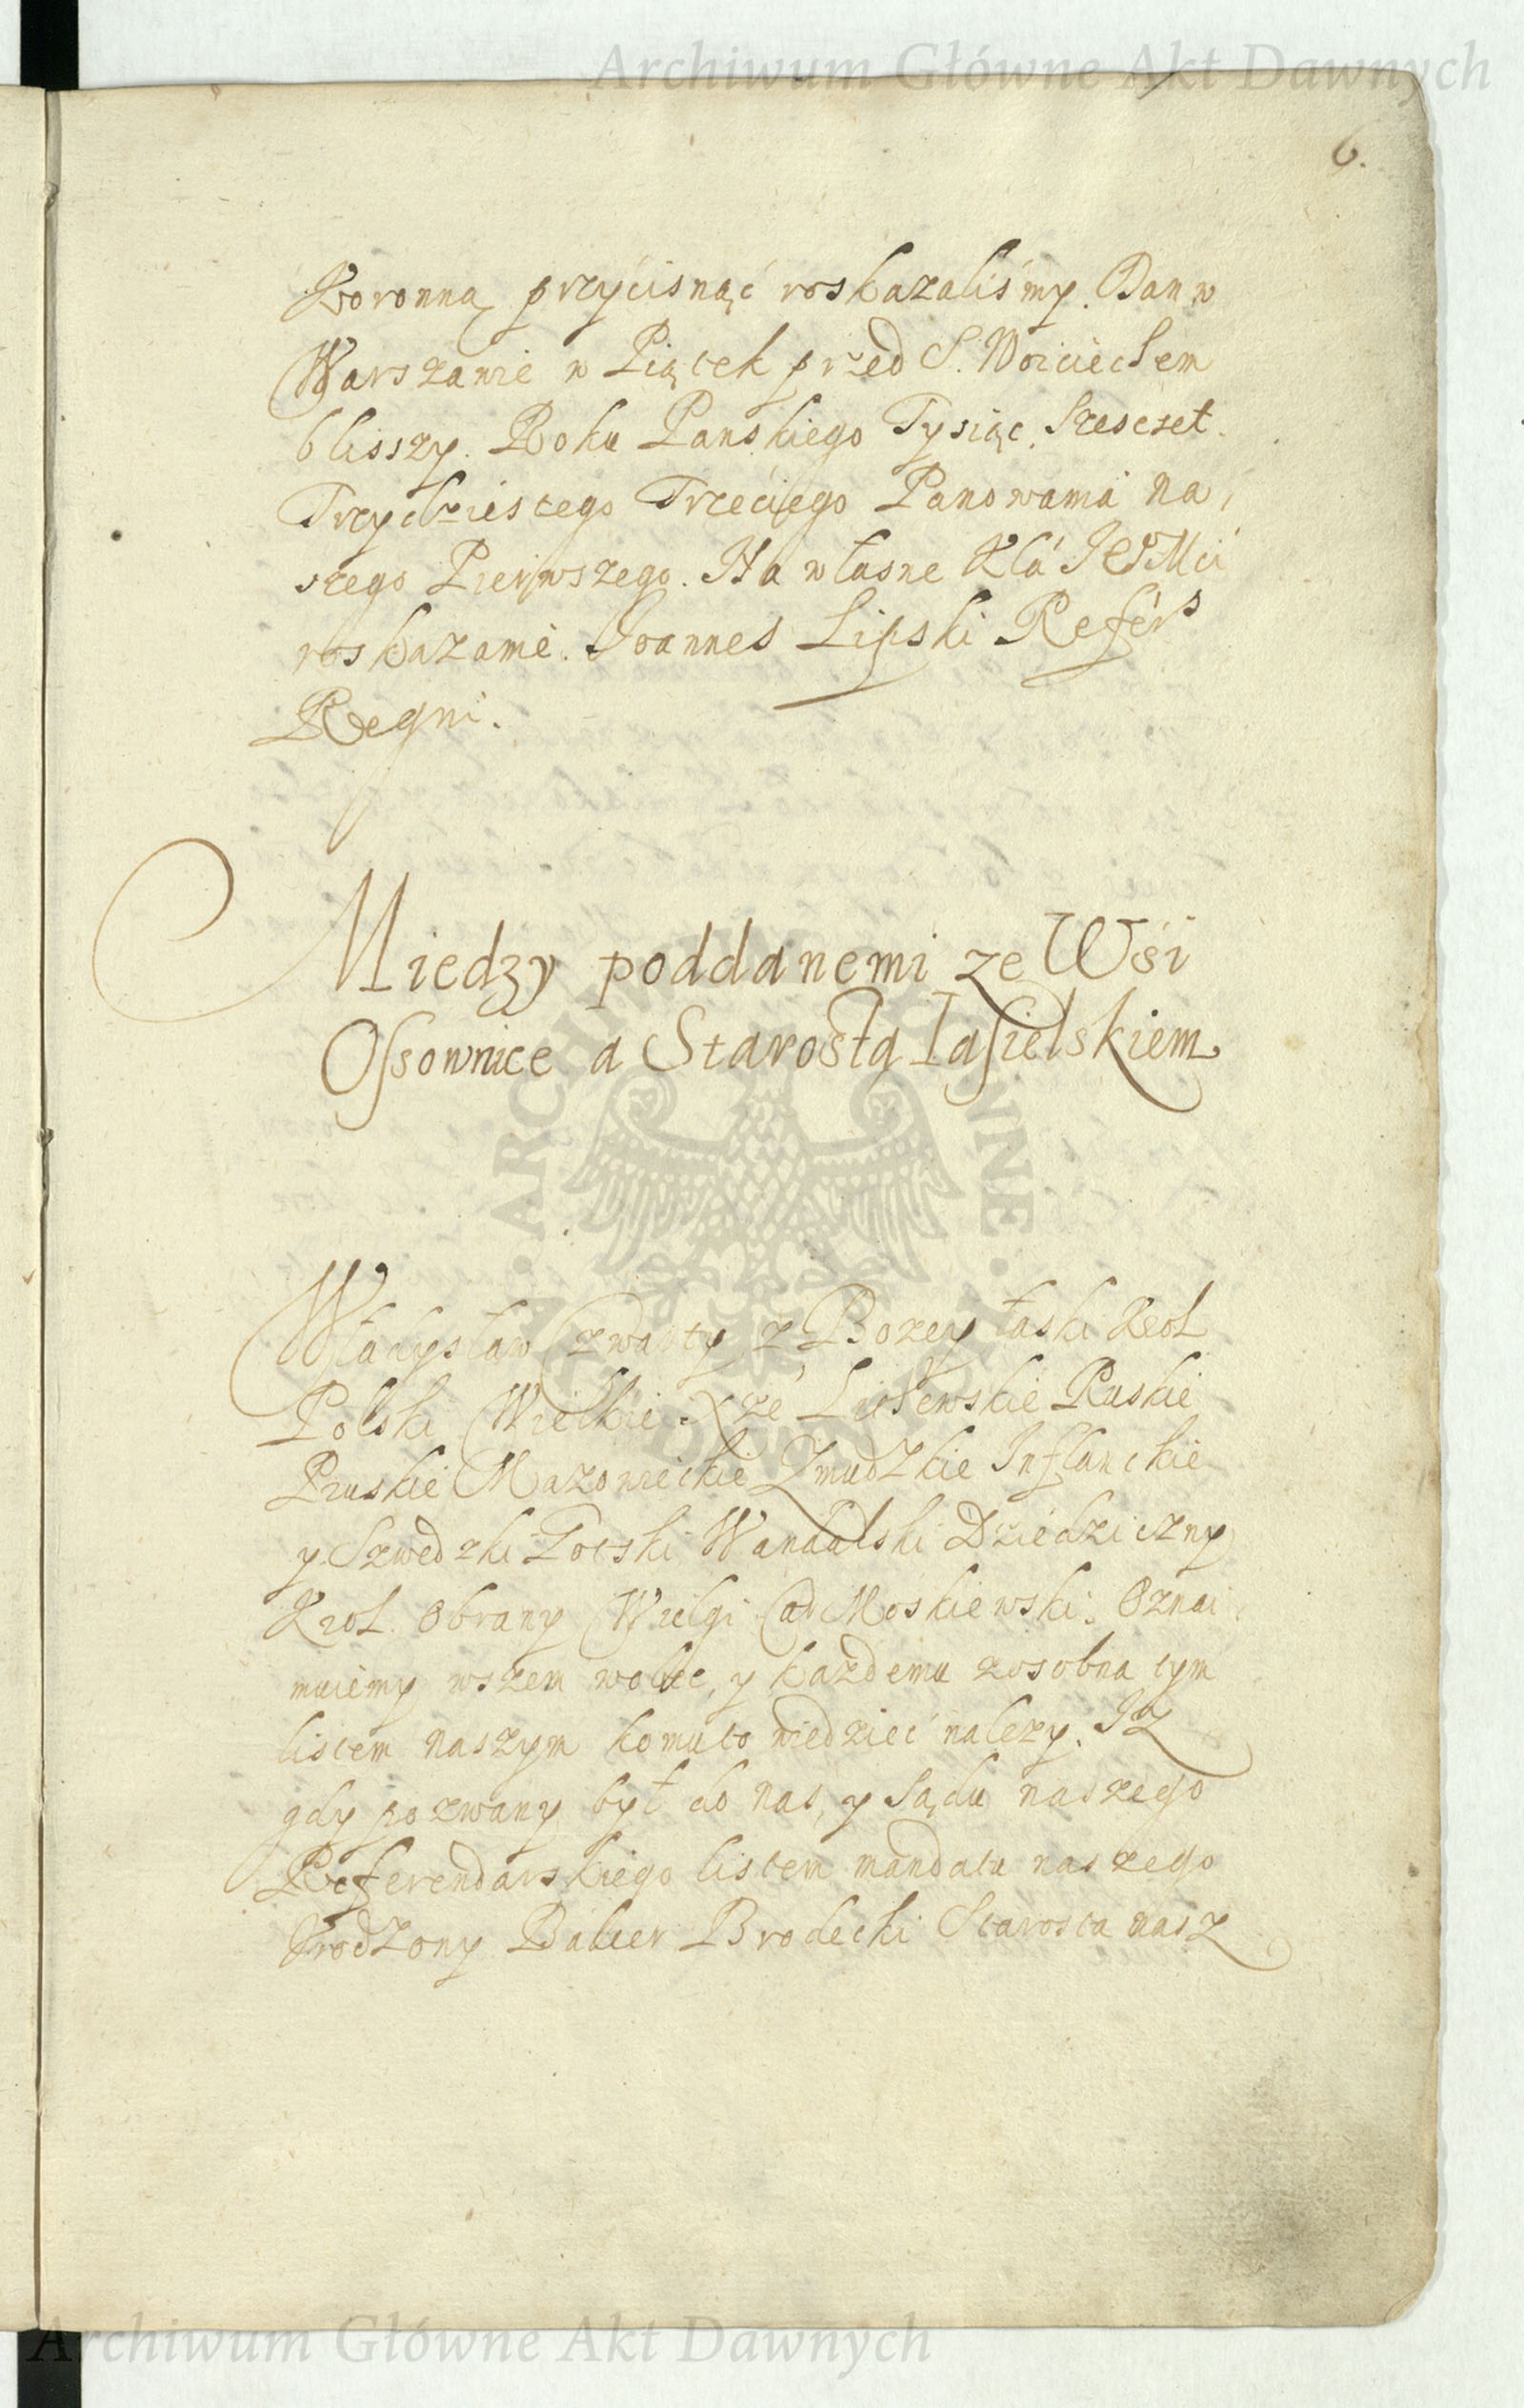 Archiwum Główne Akt Dawnych
6.
Koronną przyćisnąć roskazaliśmy. Dan w
Warszawie w Piątek przed S. Woiciechem
blisszy. Roku Panskiego Tysiąc Szescset
Trzydziestego Trzeciego Panowania na,
szego Pierwszego. Na własne Kla JEoMci
roskazanie. Joannes Lipski Refers
Regni.
Miedzy poddanemi ze Wśi
Ossownice a Starostą Iasielskiem
Władysław Czwarty z Bozey łaski Krol
Polski Wielkie Xże Litewskie Ruskie
Pruskie Mazowieckie Zmudzkie Inflanckie
y Szwedzki Gotski Wandalski Dziedziczny
Krol. Obrany Wielgi Car Moskiewski. Oznai,
muiemy wszem wobec, y kazdemu zosobna tym
listem naszym komuto wiedzieć nalezy. Iz
gdy pozwany był do nas, y Sądu naszego
Referendarskiego listem mandatu naszego
Urodzony Balcer Brodecki Starosta nasz
ARCHIWUM GŁÓWNE AKT DAWNYCH
Archiwum Główne Akt Dawnych